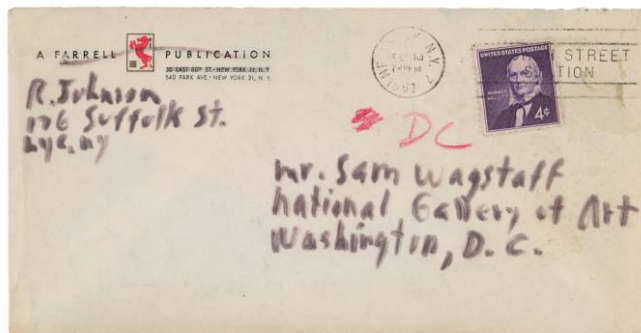 A FARRELL PUBLICATION
30 EAST 60TH ST.-NEW YORK 22, N.Y.
540 PARK AVE.-NEW YORK 21, N.Y.
R. Johnson
176 Suffolk St.
nyc, ny
N.Y.
1961
STREET
UNITED STATES POSTAGE
HORACE GREELEY
4¢
DC
mr. Sam Wagstaff
national Gallery of Art
Washington, D.C.